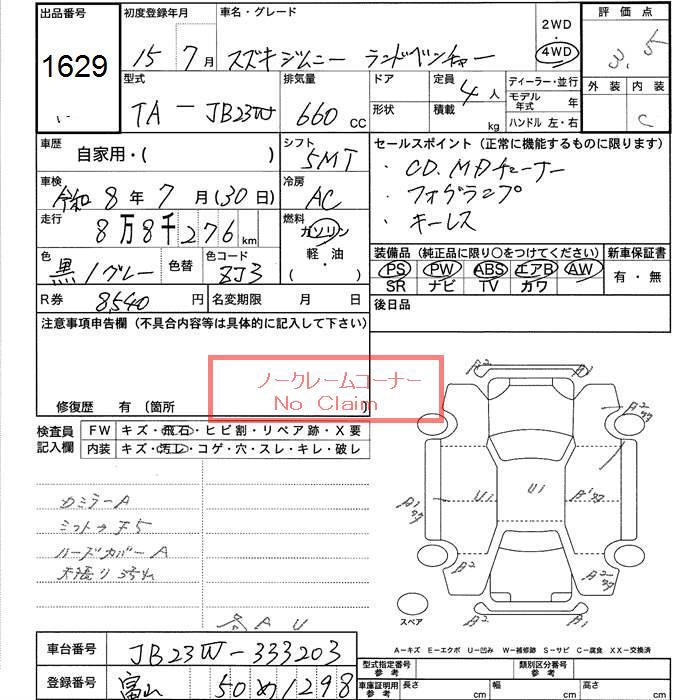 出品番号 初度登録年月 車名・グレード 2WD 評価点
1629 15年 7月 スズキジムニー ランドベンチャー 4WD 3.5
型式 排気量 ドア 定員 4人 ディーラー・並行 外装 内装
TA-JB23W 660cc 形状 積載 kg モデル年式 年 C
ハンドル 左・右
車歴 自家用・( ) シフト 5MT セールスポイント(正常に機能するものに限ります)
車検 令和8年7月(30日) 冷房 AC ・CD.MDチューナー
走行 8万8千276km 燃料 ガソリン ・フォグランプ
軽油 ・キーレス
( ・ )
色 黒/グレー 色替 色コード ZJ3 装備品(純正品に限り○をつけてください) 新車保証書
PS PW ABS エアB AW 有・無
SR ナビ TV カワ
R券 8540円 名変期限 月 日 後日品
注意事項申告欄(不具合内容等は具体的に記入して下さい)
ノークレームコーナー
No Claim
修復歴 有(箇所
検査員記入欄 FW キズ・飛石・ヒビ割・リペア跡・X要
内装 キズ・汚レ・コゲ・穴・スレ・キレ・破レ
カミラーA
ハードカバーA
A2
A2
A2
U1 U1
A1
A1
A2
A2
A2
スペア
A U
A-キズ E-エクボ U-凹み W-補修跡 S-サビ C-腐食 XX-交換済
車台番号 JB23W-333203
登録番号 富山 50 め1298
型式指定番号 参考 類別区分番号 参考
車庫証明用参考 長さ cm 幅 cm 高さ cm